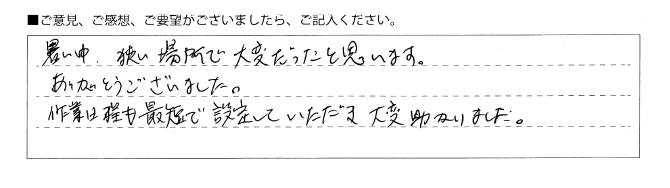 ■ご意見、ご感想、ご要望がございましたら、ご記入ください。
暑い中、狭い場所で大変だったと思います。
ありがとうございました。
作業日程も最短で設定していただき大変助かりました。